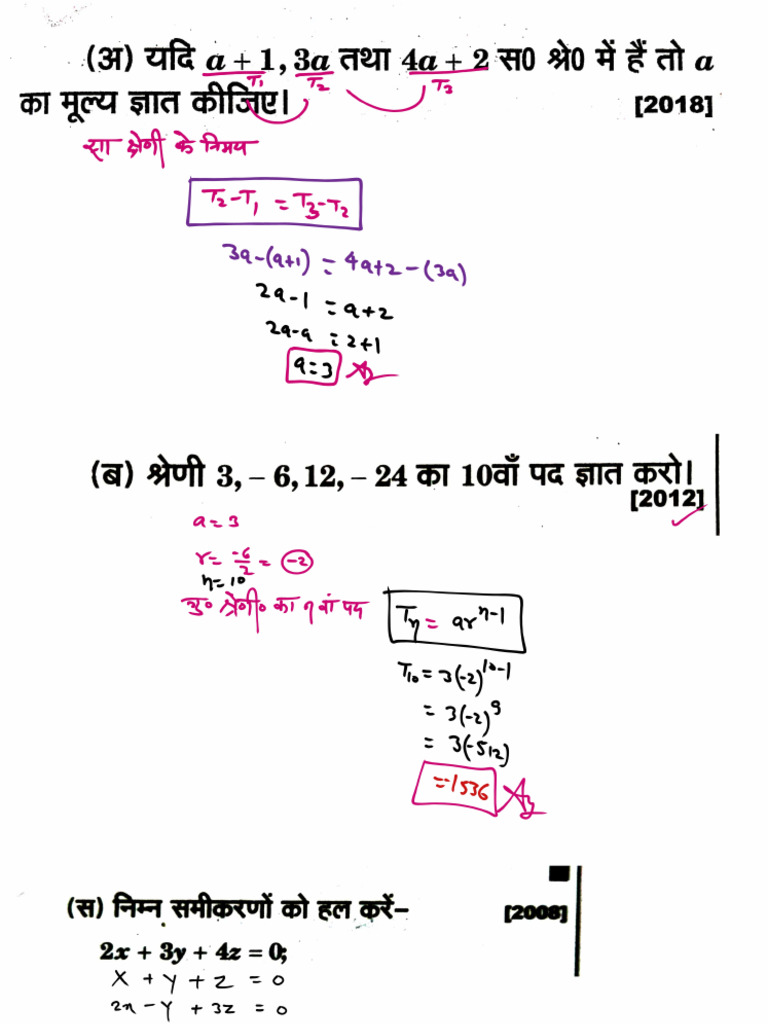 (अ) यदि a + 1, 3a तथा 4a + 2 स0 श्रे0 में हैं तो a
T₁ T₂ T₃
का मूल्य ज्ञात कीजिए। [2018]
श्रेणी के नियम
T₂-T₁ = T₃-T₂
3a-(a+1) = 4a+2-(3a)
2a-1 = a+2
2a-a = 2+1
a=3
(ब) श्रेणी 3, – 6, 12, – 24 का 10वाँ पद ज्ञात करो।
[2012]
a=3
r= -6/2 = -2
n=10
गु० श्रेणी० का n वां पद
Tn = arⁿ⁻¹
T₁₀ = 3(-2)¹⁰⁻¹
= 3(-2)⁹
= 3(-512)
=-1536
(स) निम्न समीकरणों को हल करें– [2008]
2x + 3y + 4z = 0;
x + y + z = 0
2x - y + 3z = 0